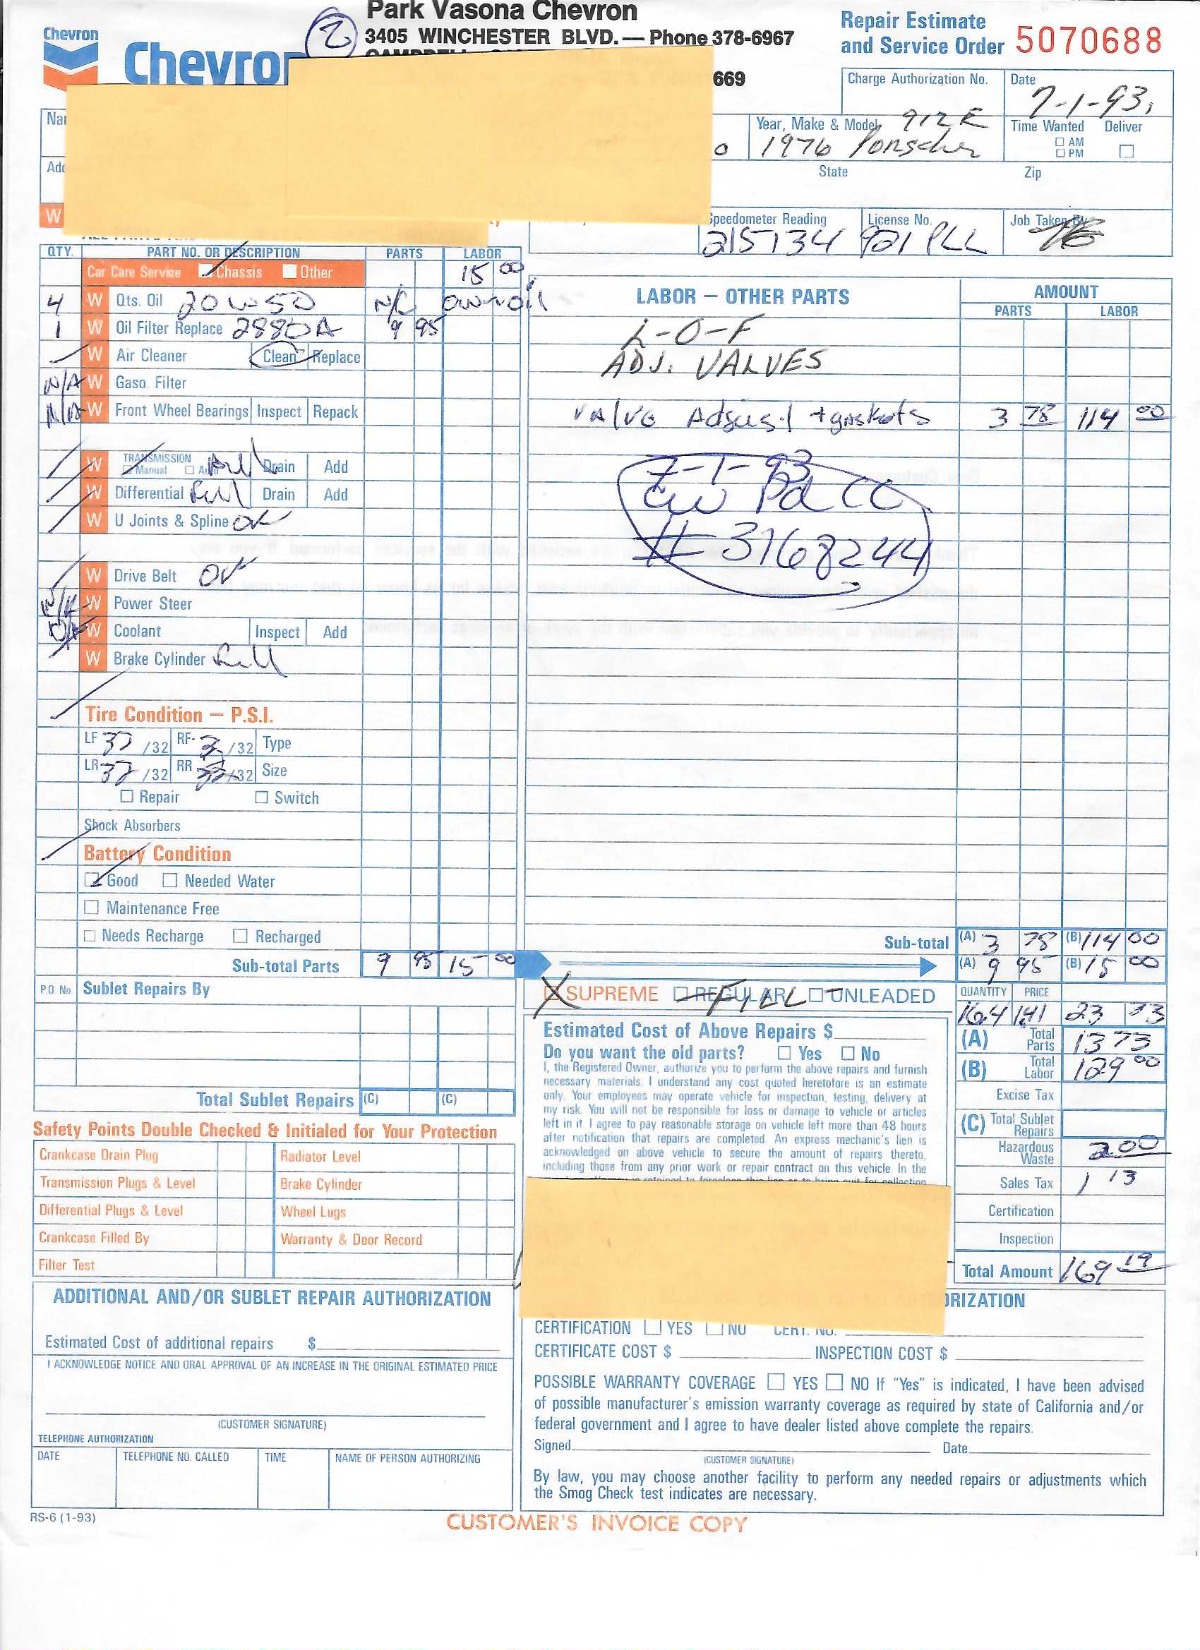 Park Vasona Chevron
3405 WINCHESTER BLVD. — Phone 378-6967
2
Chevron
Chevron
669
Repair Estimate
and Service Order 5070688
Charge Authorization No.
Date
7-1-93
Year, Make & Model 912E
1976 Porsche
Time Wanted Deliver
AM
PM
State Zip
Speedometer Reading
215134
License No.
921 PLL
Job Taken By
QTY. PART NO. OR DESCRIPTION PARTS LABOR
Car Care Service Chassis Other 15 00
4 W Qts. Oil 20W50 N/C own oil
1 W Oil Filter Replace 2880A 9 95
W Air Cleaner Clean Replace
N/A W Gaso. Filter
N/A W Front Wheel Bearings Inspect Repack
W TRANSMISSION Manual Auto Full Drain Add
W Differential Full Drain Add
W U Joints & Spline OK
W Drive Belt OK
N/A W Power Steer
W Coolant Inspect Add
W Brake Cylinder Full
Tire Condition — P.S.I.
LF 32 /32 RF /32 Type
LR 32 /32 RR /32 Size
Repair Switch
Shock Absorbers
Battery Condition
Good Needed Water
Maintenance Free
Needs Recharge Recharged
Sub-total Parts 9 95 15 00
PO No Sublet Repairs By
Total Sublet Repairs (C) (C)
Safety Points Double Checked & Initialed for Your Protection
Crankcase Drain Plug Radiator Level
Transmission Plugs & Level Brake Cylinder
Differential Plugs & Level Wheel Lugs
Crankcase Filled By Warranty & Door Record
Filter Test
LABOR — OTHER PARTS AMOUNT
PARTS LABOR
L-O-F
ADJ. VALVES
Valve Adjust + gaskets 3 78 114 00
7-1-93
Pd CC
# 3168244
Sub-total (A) 3 78 (B) 114 00
(A) 9 95 (B) 15 00
SUPREME REGULAR UNLEADED
FILL
QUANTITY PRICE
16.4 1.41 23 73
(A) Total Parts 13 73
(B) Total Labor 129 00
Excise Tax
(C) Total Sublet Repairs
Hazardous Waste 2.00
Sales Tax 1 13
Certification
Inspection
Total Amount 169 19
Estimated Cost of Above Repairs $
Do you want the old parts? Yes No
I, the Registered Owner, authorize you to perform the above repairs and furnish
necessary materials. I understand any cost quoted heretofore is an estimate
only. Your employees may operate vehicle for inspection, testing, delivery at
my risk. You will not be responsible for loss or damage to vehicle or articles
left in it. I agree to pay reasonable storage on vehicle left more than 48 hours
after notification that repairs are completed. An express mechanic's lien is
acknowledged on above vehicle to secure the amount of repairs thereto,
including those from any prior work or repair contract on this vehicle. In the
ADDITIONAL AND/OR SUBLET REPAIR AUTHORIZATION
Estimated Cost of additional repairs $
I ACKNOWLEDGE NOTICE AND ORAL APPROVAL OF AN INCREASE IN THE ORIGINAL ESTIMATED PRICE
(CUSTOMER SIGNATURE)
TELEPHONE AUTHORIZATION
DATE TELEPHONE NO. CALLED TIME NAME OF PERSON AUTHORIZING
RS-6 (1-93)
ORIZATION
CERTIFICATION YES NO CERT. NO.
CERTIFICATE COST $ INSPECTION COST $
POSSIBLE WARRANTY COVERAGE YES NO If "Yes" is indicated, I have been advised
of possible manufacturer's emission warranty coverage as required by state of California and/or
federal government and I agree to have dealer listed above complete the repairs.
Signed Date
(CUSTOMER SIGNATURE)
By law, you may choose another facility to perform any needed repairs or adjustments which
the Smog Check test indicates are necessary.
CUSTOMER'S INVOICE COPY